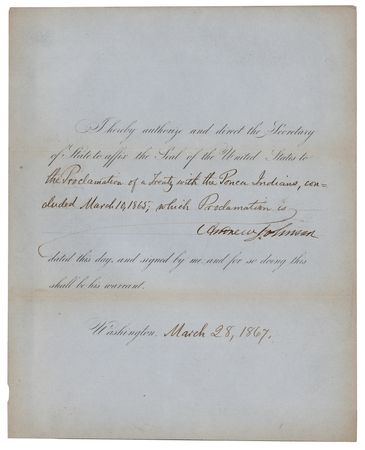 I hereby authorize and direct the Secretary
of State to affix the Seal of the United States to
the Proclamation of a Treaty with the Ponca Indians, con-
cluded March 10, 1865; which Proclamation is
Andrew Johnson
dated this day, and signed by me and for so doing this
shall be his warrant.
Washington, March 28, 1867.